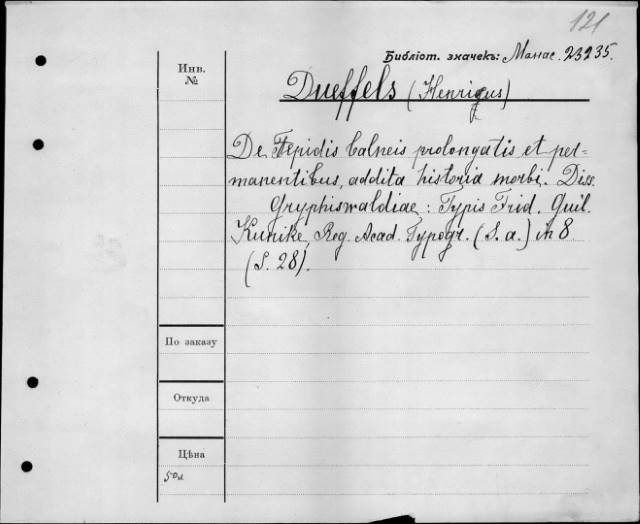 121
Библіот. значекъ: Манас. 23235.
Инв.
№
Dueffels (Henricus)
De Tepidis balneis prolongatis et per=
manentibus, addita historia morbi. Diss.
Gryphiswaldiae: Typis Frid. Guil.
Kunike, Reg. Acad. Typogr. (S. a.) in 8
(S. 28).
По заказу
Откуда
Цѣна